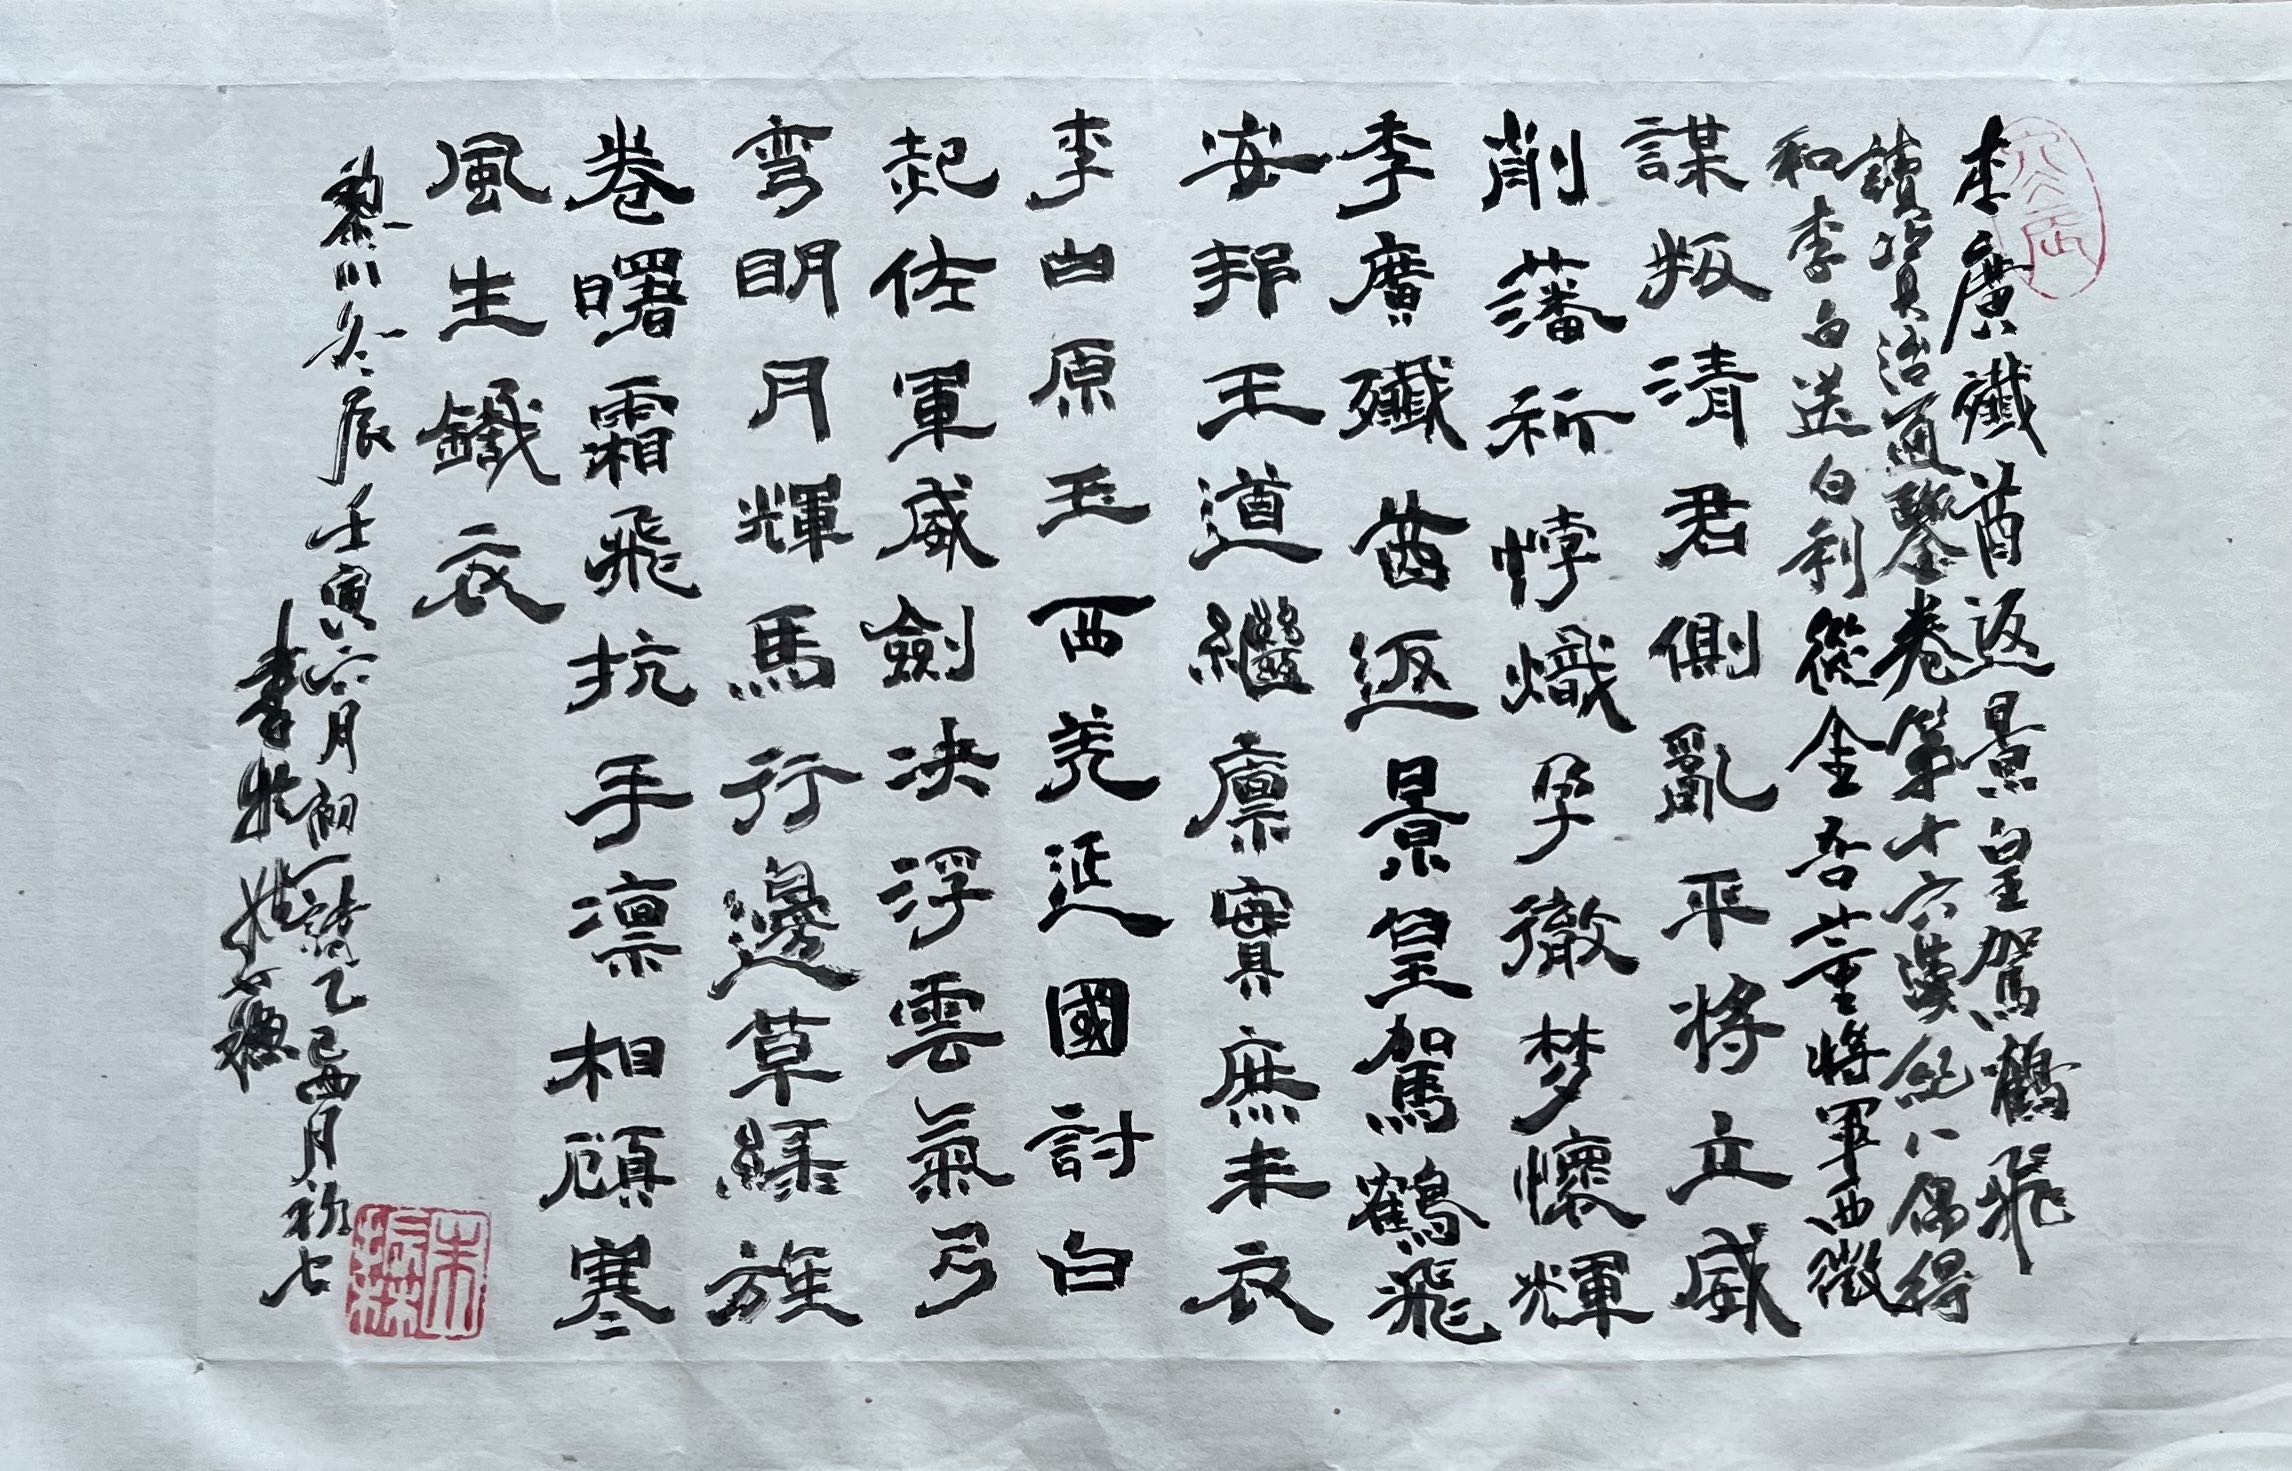 李廣殲酋返景皇駕鶴飛
讀資治通鑒卷第十六漢紀八偶得
和李白送白利從金吾董將軍西徵
謀叛清君側亂平將立威
削藩祈悖熾孕徹梦懷輝
李廣殲酋返景皇駕鶴飛
安邦王道繼廪實庶未衣
李白原玉西羌延國討白
起佐軍威劍決浮雲氣弓
弯明月輝馬行邊草綠旌
卷曙霜飛抗手凛相顧寒
風生鐵衣
黎川冬辰壬寅六月初一詩乙巳四月初七
書於